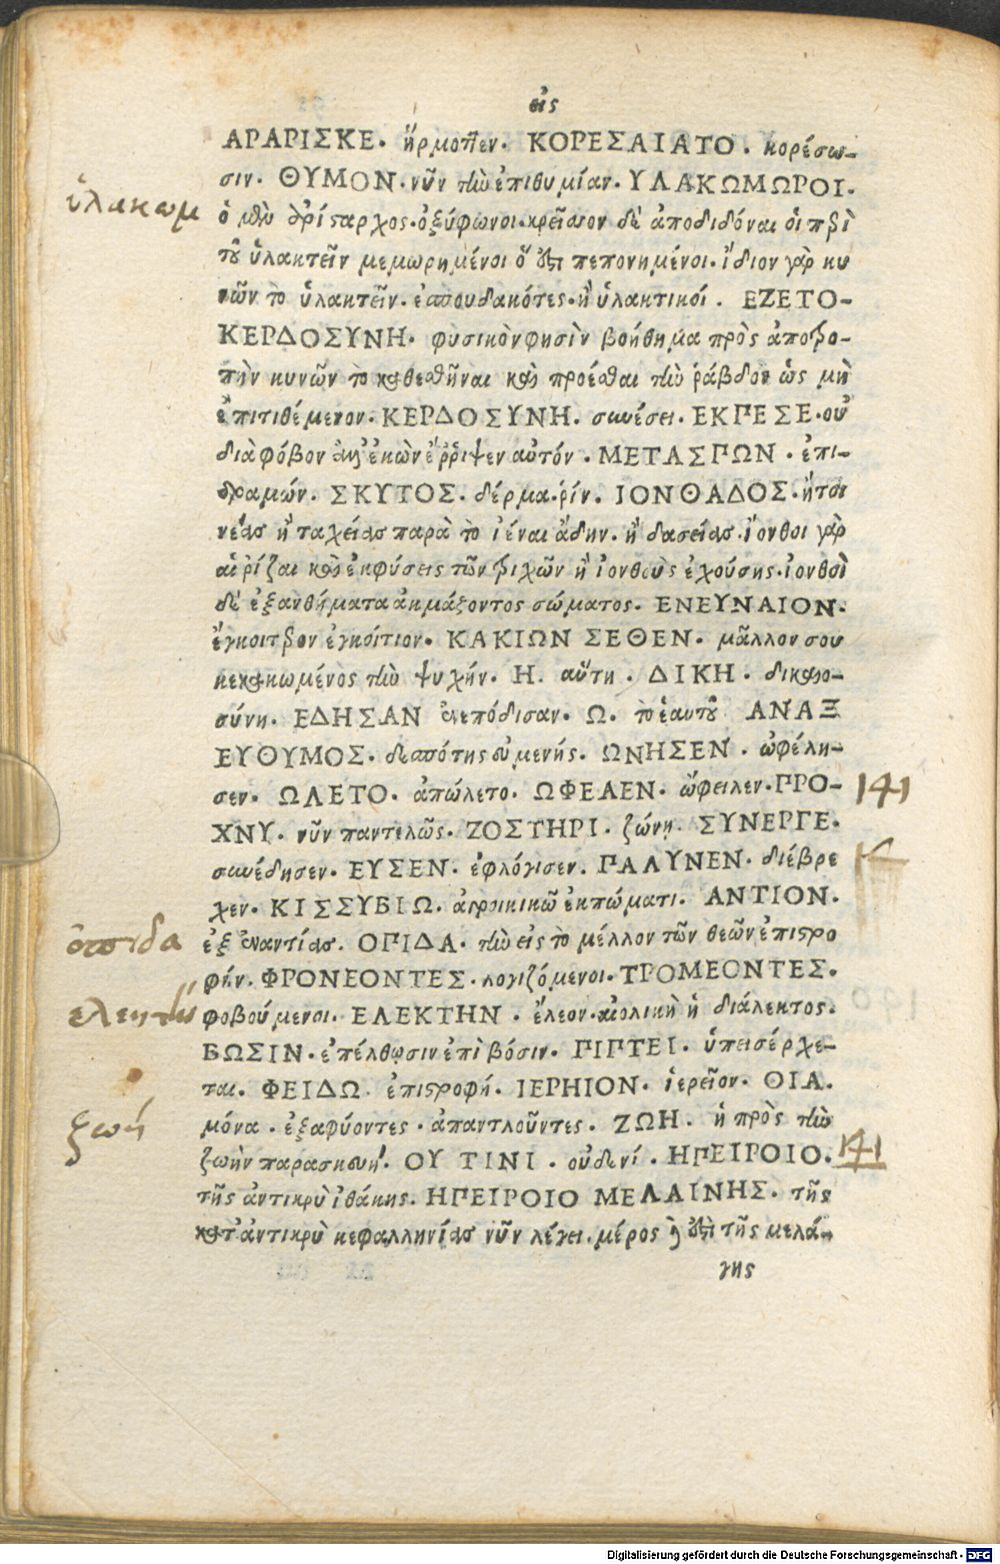 εἰς
ΑΡΑΡΙΣΚΕ. ἥρμοττεν. ΚΟΡΕΣΑΙΑΤΟ. κορέσω-
σιν. ΘΥΜΟΝ. νῦν τὴν ἐπιθυμίαν. ΥΛΑΚΩΜΩΡΟΙ.
ὑλακωμ
ὁ μὲν ἀρίσταρχος. ὀξύφωνοι. κρεῖσσον δὲ ἀποδιδόναι οἱ περὶ
τοῦ ὑλακτεῖν μεμωρημένοι ὅ ἐστι πεπονημένοι. ἴδιον γὰρ κυ
νῶν τὸ ὑλακτεῖν. ἐσπουδακότες. ἢ ὑλακτικοί. ΕΖΕΤΟ-
ΚΕΡΔΟΣΥΝΗ. φυσικὸν φησὶν βοήθημα πρὸς ἀποτρο-
πὴν κυνῶν τὸ καθεσθῆναι καὶ προέσθαι τὴν ῥάβδον ὡς μὴ
ἐπιτιθέμενον. ΚΕΡΔΟΣΥΝΗ. συνέσει. ΕΚΠΕΣΕ. οὐ
διὰ φόβον ἀλλ' ἑκὼν ἔρριψεν αὐτόν. ΜΕΤΑΣΠΩΝ. ἐπι-
δραμών. ΣΚΥΤΟΣ. δέρμα. ῥίν. ΙΟΝΘΑΔΟΣ. ἤτοι
νέας ἢ ταχείας παρὰ τὸ ἰέναι ἄδην. ἢ δασείας. ἴονθοι γὰρ
αἱ ῥίζαι καὶ ἐκφύσεις τῶν τριχῶν ἢ ἰονθοὺς ἐχούσης. ἰονθοὶ
δὲ ἐξανθήματα ἀκμάζοντος σώματος. ΕΝΕΥΝΑΙΟΝ.
ἔγκοιτρον ἐγκοίτιον. ΚΑΚΙΩΝ ΣΕΘΕΝ. μᾶλλον σου
κεκακωμένος τὴν ψυχήν. Η. αὕτη. ΔΙΚΗ. δικαιο-
σύνη. ΕΔΗΣΑΝ ἐνεπόδισαν. Ω. τὸ ἑαυτοῦ ΑΝΑΞ
ΕΥΘΥΜΟΣ. δεσπότης εὐμενής. ΩΝΗΣΕΝ. ὠφέλη-
σεν. ΩΛΕΤΟ. ἀπώλετο. ΩΦΕΛΕΝ. ὤφειλεν. ΠΡΟ-
141
ΧΝΥ. νῦν παντελῶς. ΖΟΣΤΗΡΙ. ζώνη. ΣΥΝΕΡΓΕ.
συνέδησεν. ΕΥΣΕΝ. ἐφλόγισεν. ΠΑΛΥΝΕΝ. διέβρε
χεν. ΚΙΣΣΥΒΙΩ. ἀγροικικῶ ἐκπώματι. ΑΝΤΙΟΝ.
ὀπιδα
ἐξ ἐναντίας. ΟΠΙΔΑ. τὴν εἰς τὸ μέλλον τῶν θεῶν ἐπιστρο
φήν. ΦΡΟΝΕΟΝΤΕΣ. λογιζόμενοι. ΤΡΟΜΕΟΝΤΕΣ.
ελεητὺν
φοβούμενοι. ΕΛΕΚΤΗΝ. ἔλεον. αἰολικὴ ἡ διάλεκτος.
ΒΩΣΙΝ. ἐπέλθωσιν ἐπὶ βόσιν. ΠΙΠΤΕΙ. ὑπεισέρχε-
ται. ΦΕΙΔΩ. ἐπιστροφή. ΙΕΡΗΙΟΝ. ἱερεῖον. ΘΙΑ.
μόνα. ἐξαφύοντες. ἀπαντλοῦντες. ΖΩΗ. ἡ πρὸς τὴν
ζωή
ζωὴν παρασκευή. ΟΥ ΤΙΝΙ. οὐδενί. ΗΠΕΙΡΟΙΟ.
141
τῆς ἀντικρὺ ἰθάκης. ΗΠΕΙΡΟΙΟ ΜΕΛΑΙΝΗΣ. τῆς
κατ' ἀντικρὺ κεφαλληνίας νῦν λέγει. μέρος γάρ ἐστι τῆς μελά-
γης